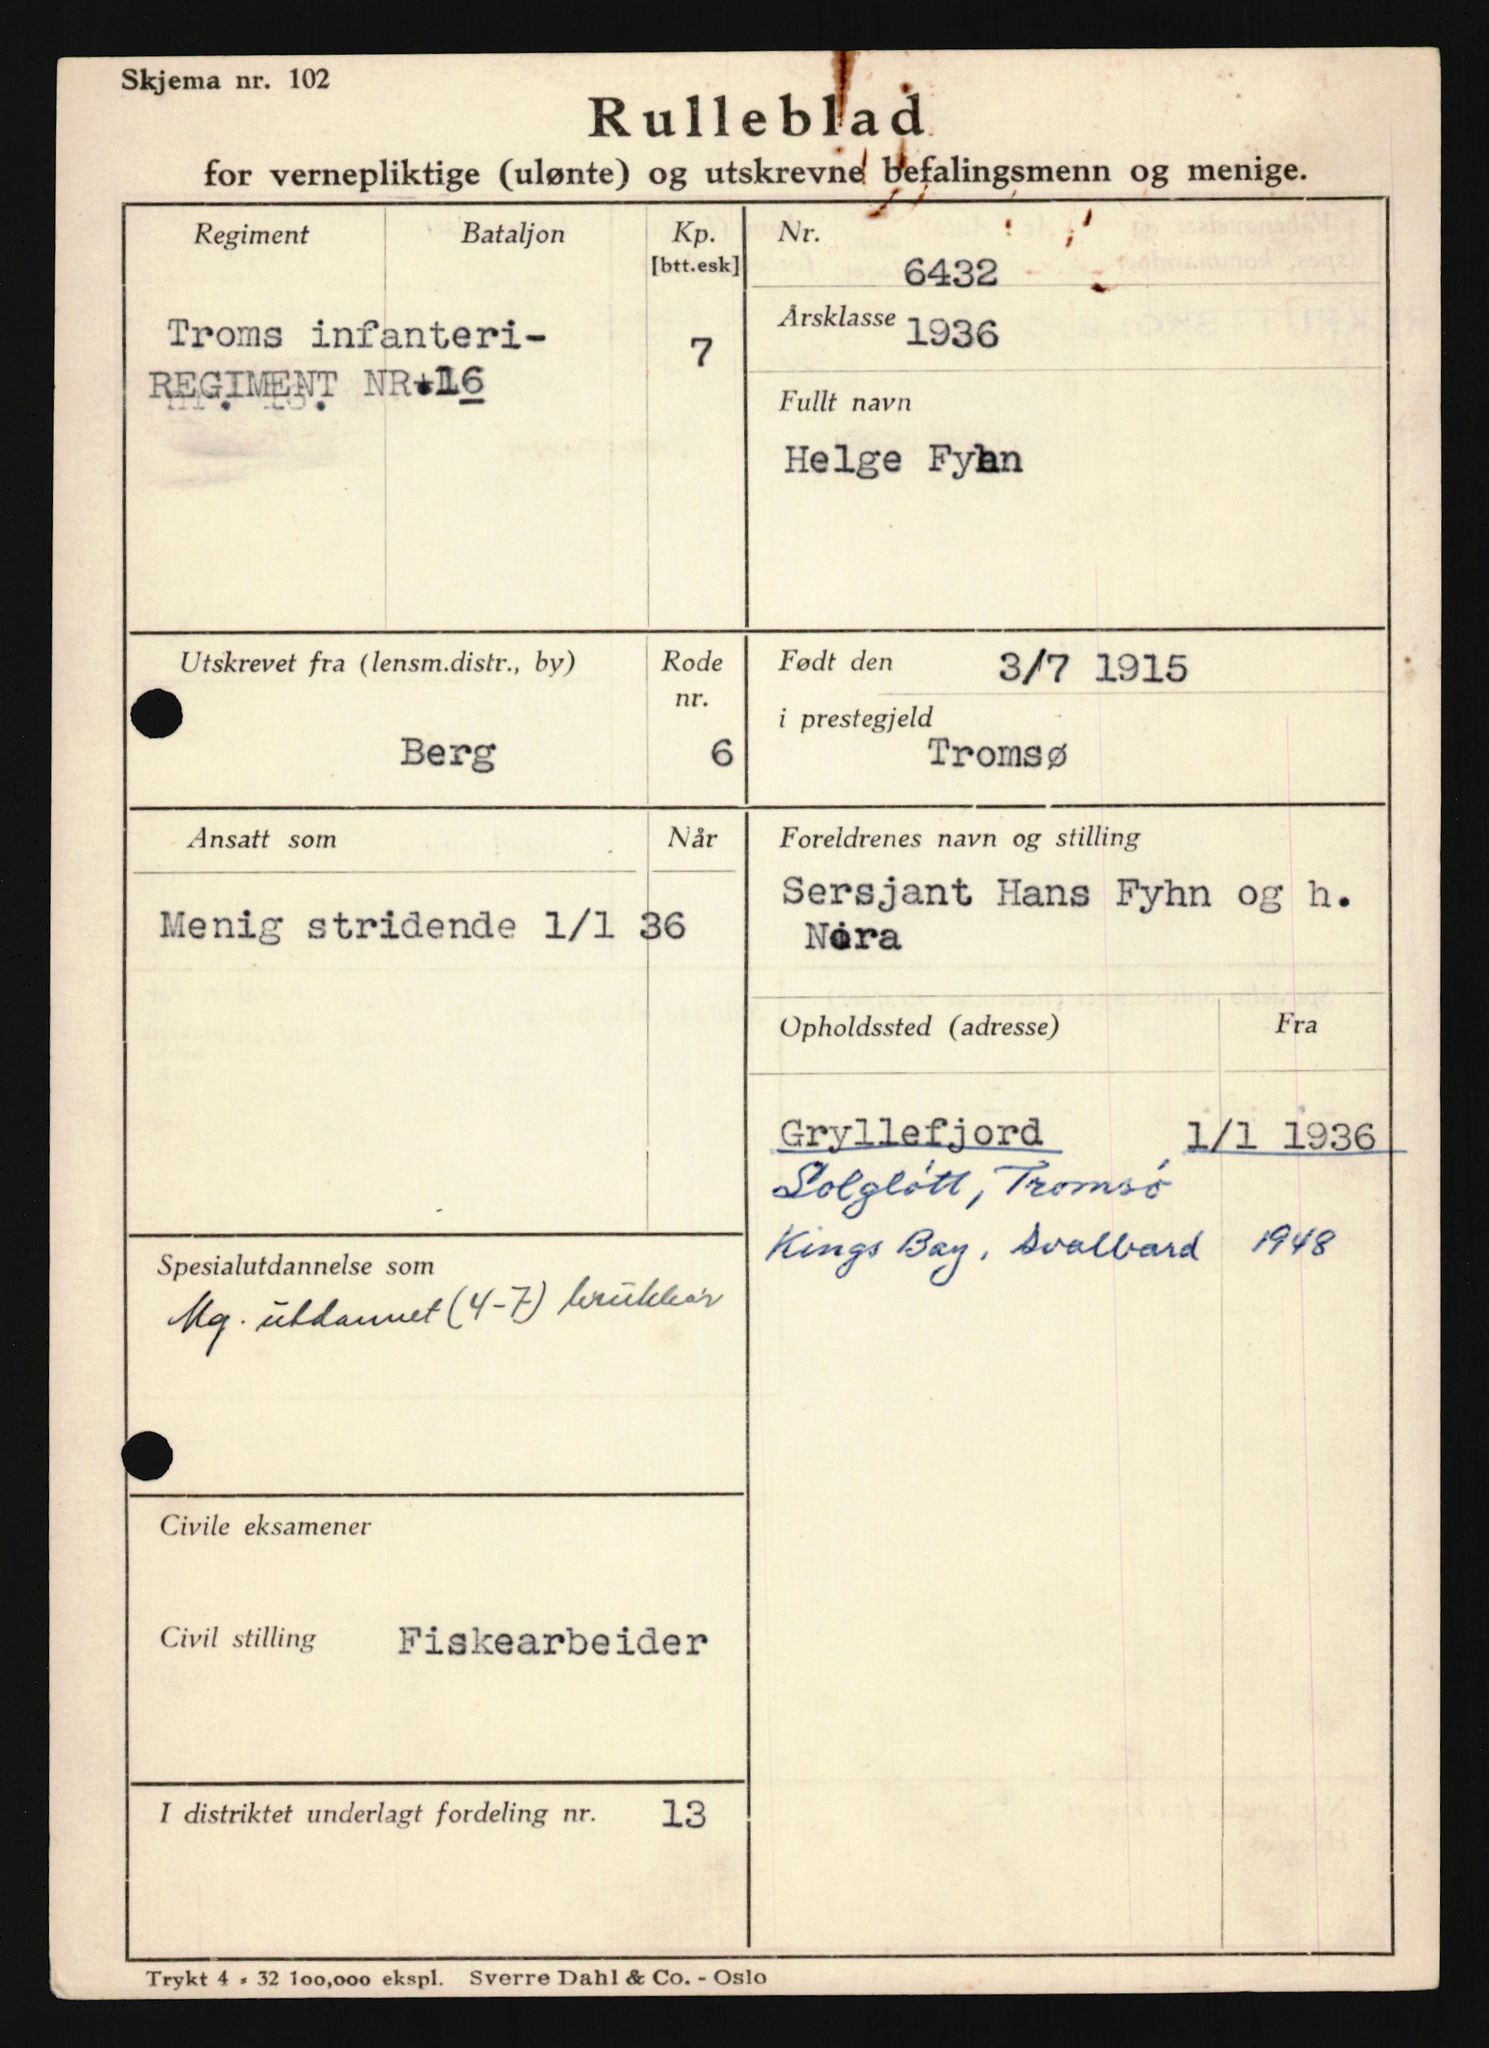 Skjema nr. 102
Rulleblad
for vernepliktige (ulønte) og utskrevne befalingsmenn og menige.
Regiment
Bataljon
Kp.
[btt.esk]
Troms infanteri-
REGIMENT NR. 16
7
Nr.
6432
Årsklasse 1936
Fullt navn
Helge Fyhn
Utskrevet fra (lensm.distr., by)
Rode
nr.
Berg
6
Født den 3/7 1915
i prestegjeld
Tromsø
Ansatt som
Når
Menig stridende 1/1 36
Foreldrenes navn og stilling
Sersjant Hans Fyhn og h.
Nora
Opholdssted (adresse)
Fra
Gryllefjord 1/1 1936
Solgløtt, Tromsø
Kings Bay, Svalbard 1948
Spesialutdannelse som
Mg. utdannet (4-7) brukbar
Civile eksamener
Civil stilling Fiskearbeider
I distriktet underlagt fordeling nr. 13
Trykt 4 - 32 100,000 ekspl. Sverre Dahl & Co. - Oslo